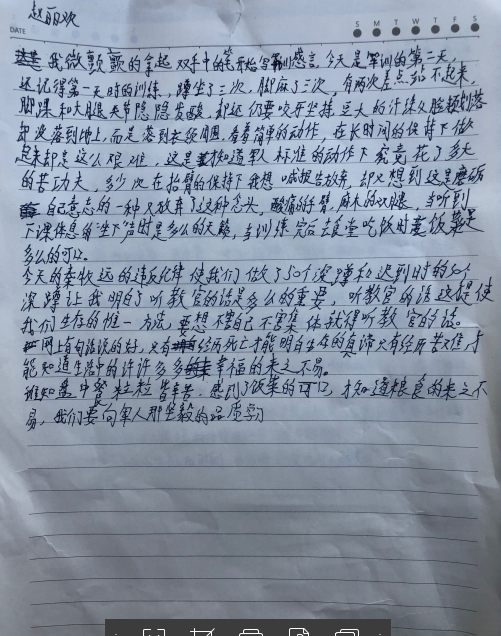 赵丽欢
DATE
S M T W T F S
我微颤颤的拿起双手中的笔开始写军训感言,今天是军训的第二天,
还记得第一天时的训练,蹲坐了三次,脚麻了三次,有两次差点站不起来,
脚踝和大腿关节隐隐发酸,却还仍要咬牙坚持,豆大的汗珠从脸颊划落
却没落到地上,而是落到衣领周围,看着简单的动作,在长时间的保持下做
起来却是这么艰难,这是我知道军人标准的动作下究竟花了多大
的苦功夫,多少次在抬臂的保持下我想喊报告放弃,却又想到这是磨砺
自己意志的一种又放弃了这种念头,酸痛的手臂,麻木的双腿,当听到
下课休息的坐下声时是多么的大赦,当训练完后去食堂吃饭时是饭菜是
多么的可口。
今天的袁牧远的违反纪律使我们做了50个深蹲和迟到时的50个
深蹲让我明白了听教官的话是多么的重要,听教官的话这是使
我们生存的唯一方法,要想不害自己不害集体就得听教官的话。
网上有句话说的好,只有经历死亡才能明白生命的真谛只有经历苦难才
能知道生活中的许许多多幸福的来之不易。
谁知盘中餐粒粒皆辛苦,感到了饭菜的可口,才知道粮食的来之不
易,我们要向军人那坚毅的品质学习